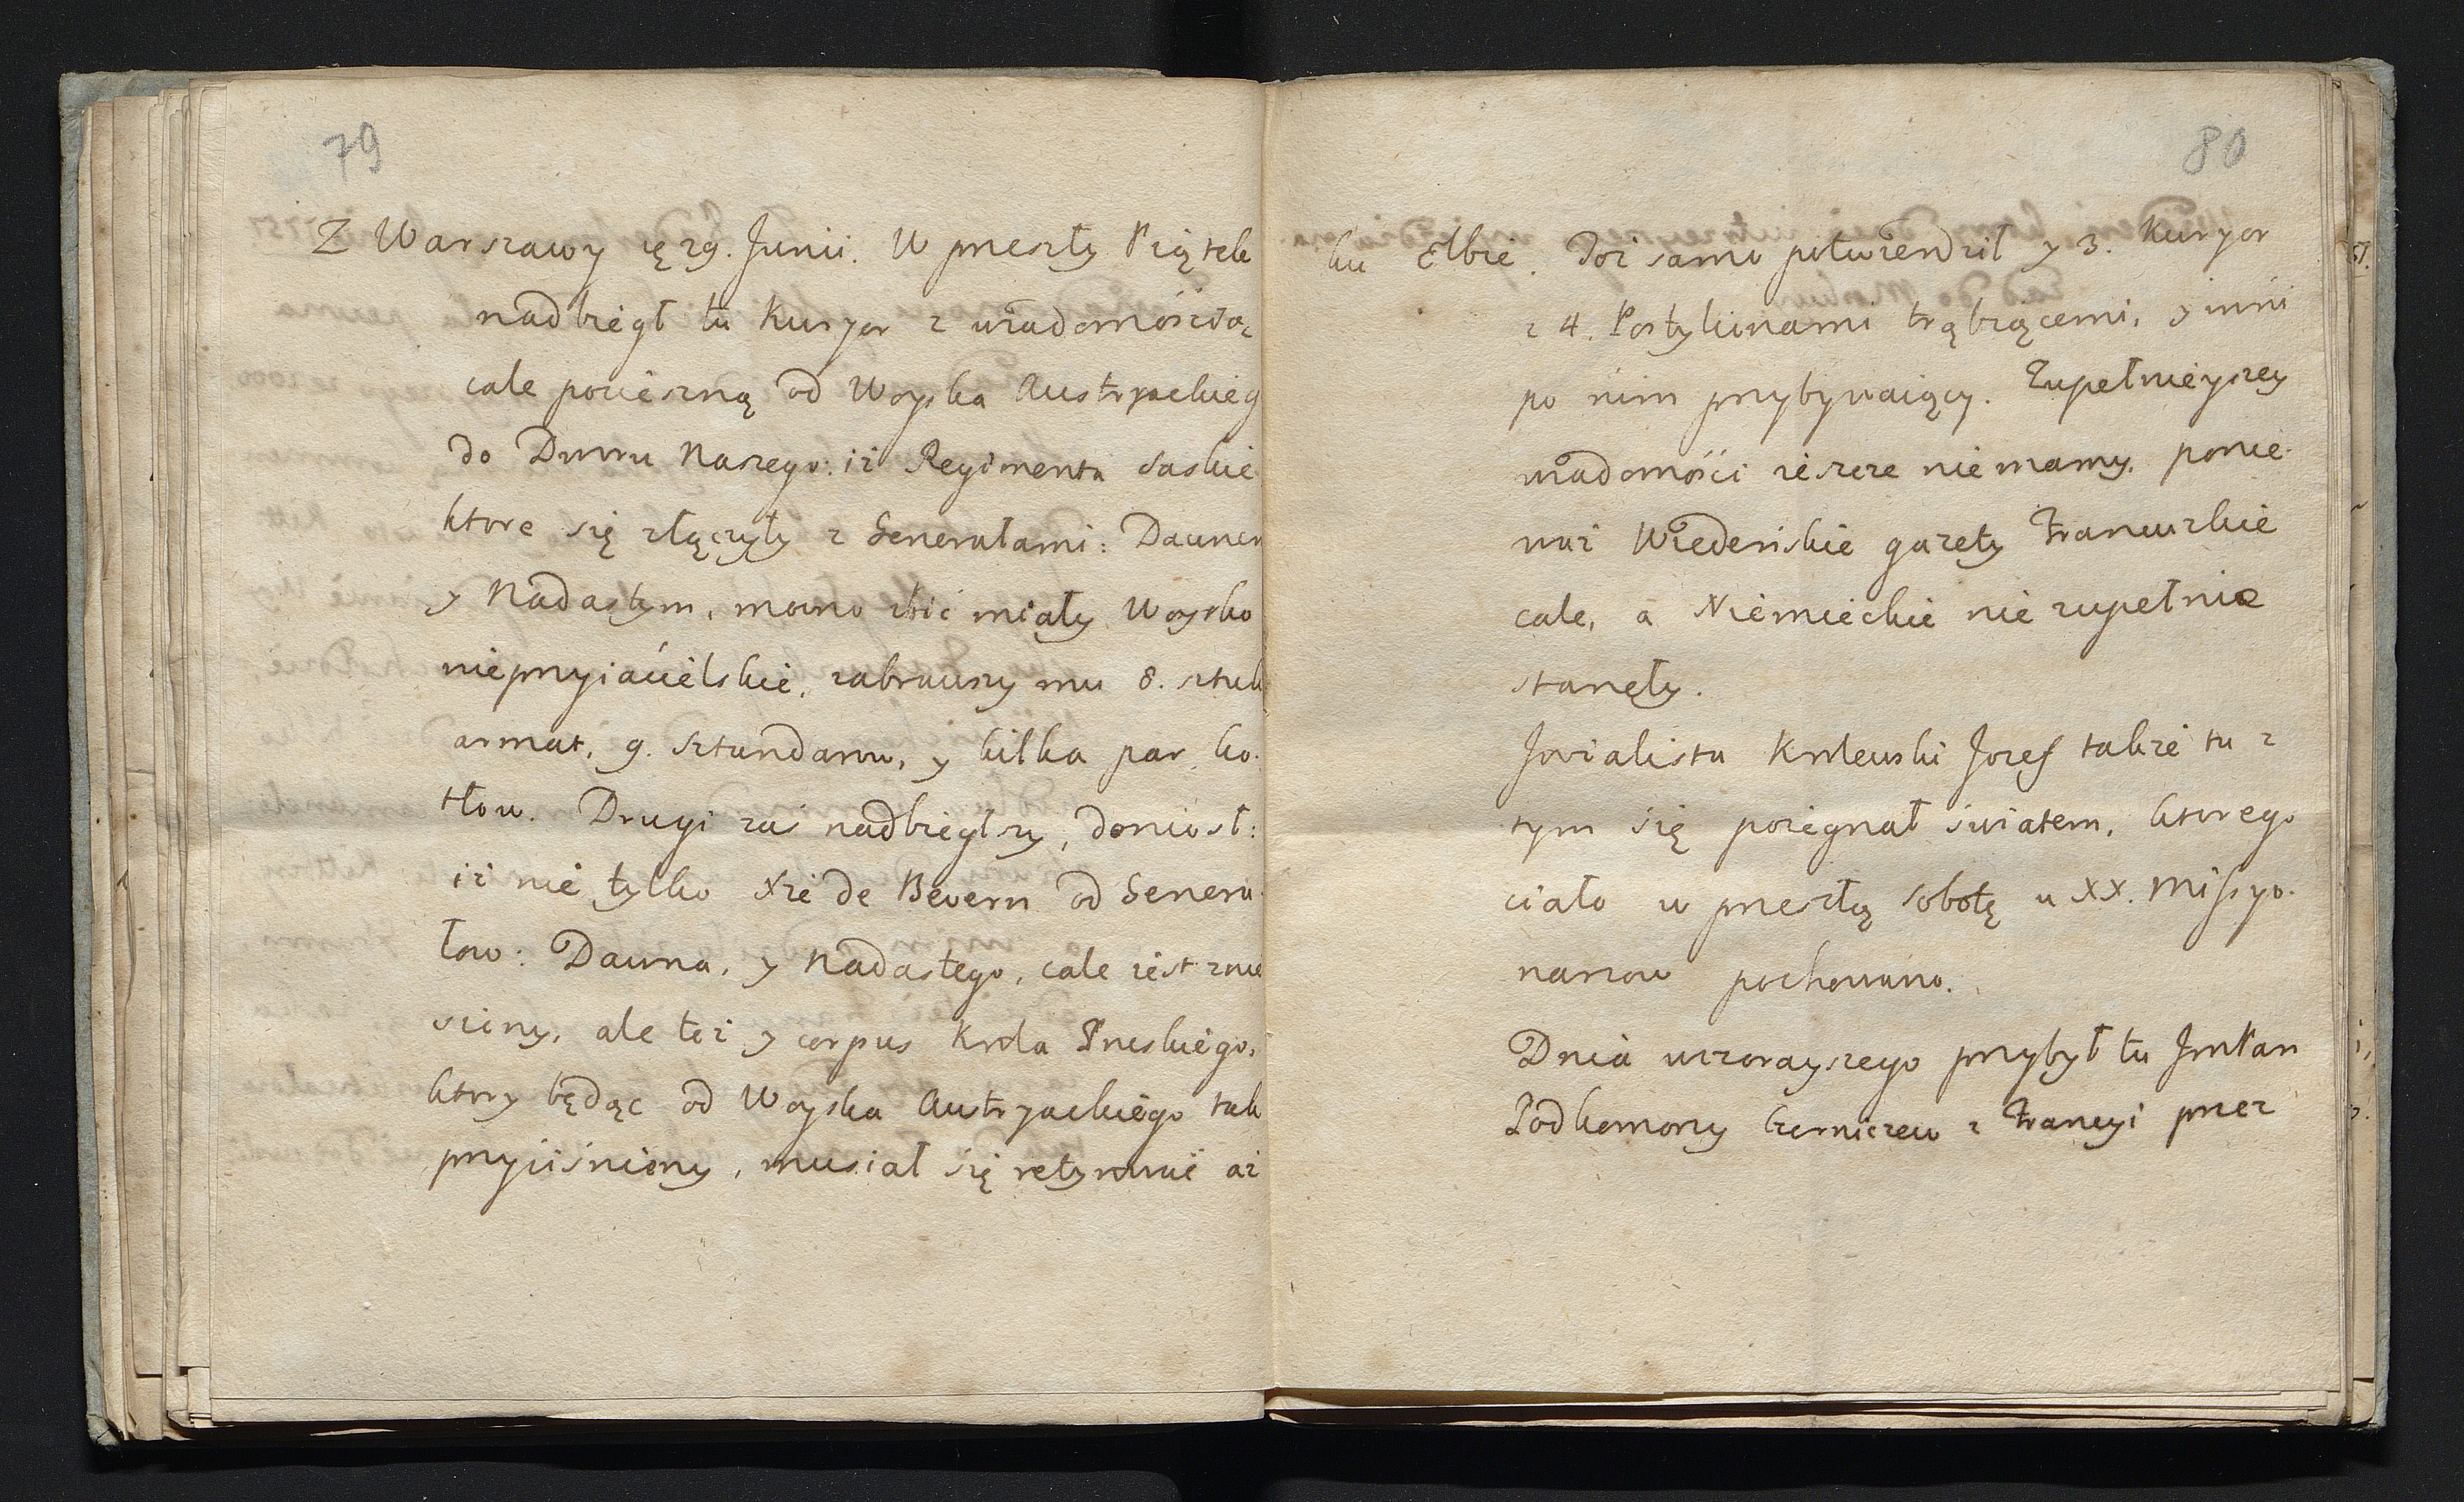 79
Z Warszawy ię 29. Junii. W przeszły Piątek
nadbiegł tu Kuryer z wiadomością
cale pocieszną od Woyska Austryackieg
do Dworu Naszego: iż Regimenta Saskie
ktore się złączyły z Generałami: Daunem
y Nadastym, mocno zbić miały Woysko
nieprzyiacielskie, zabrawszy mu 8. sztuk
armat, 9. sztandarow, y kilka par ko-
tłow. Drugi zaś nadbiegłszy, doniosł:
iż nie tylko Xże de Bevern od Genera-
łow: Dauna, y Nadastego, cale iest znie
siony, ale też y corpus Krola Pruskiego,
ktory będąc od Woyska Austryackiego tak
przyciśniony, musiał się retyrować aż
80
ku Elbie. Toż samo potwierdził y 3. Kuryer
z 4. Postylionami trąbiącemi, y inni
po nim przybywaiący. Zupełnieyszey
wiadomości ieszcze nie mamy, ponie-
waż Wiedeńskie gazety Francuzkie
cale, a Niemieckie nie zupełnie
stanęły.
Jovialista Krolewski Jozef także tu z
tym się pożegnał światem, ktorego
ciało w przeszłą sobotę u XX. Missyo-
narzow pochowano.
Dnia wczorayszego przybył tu JmPan
Podkomorzy Czerniczew z Francyi przez